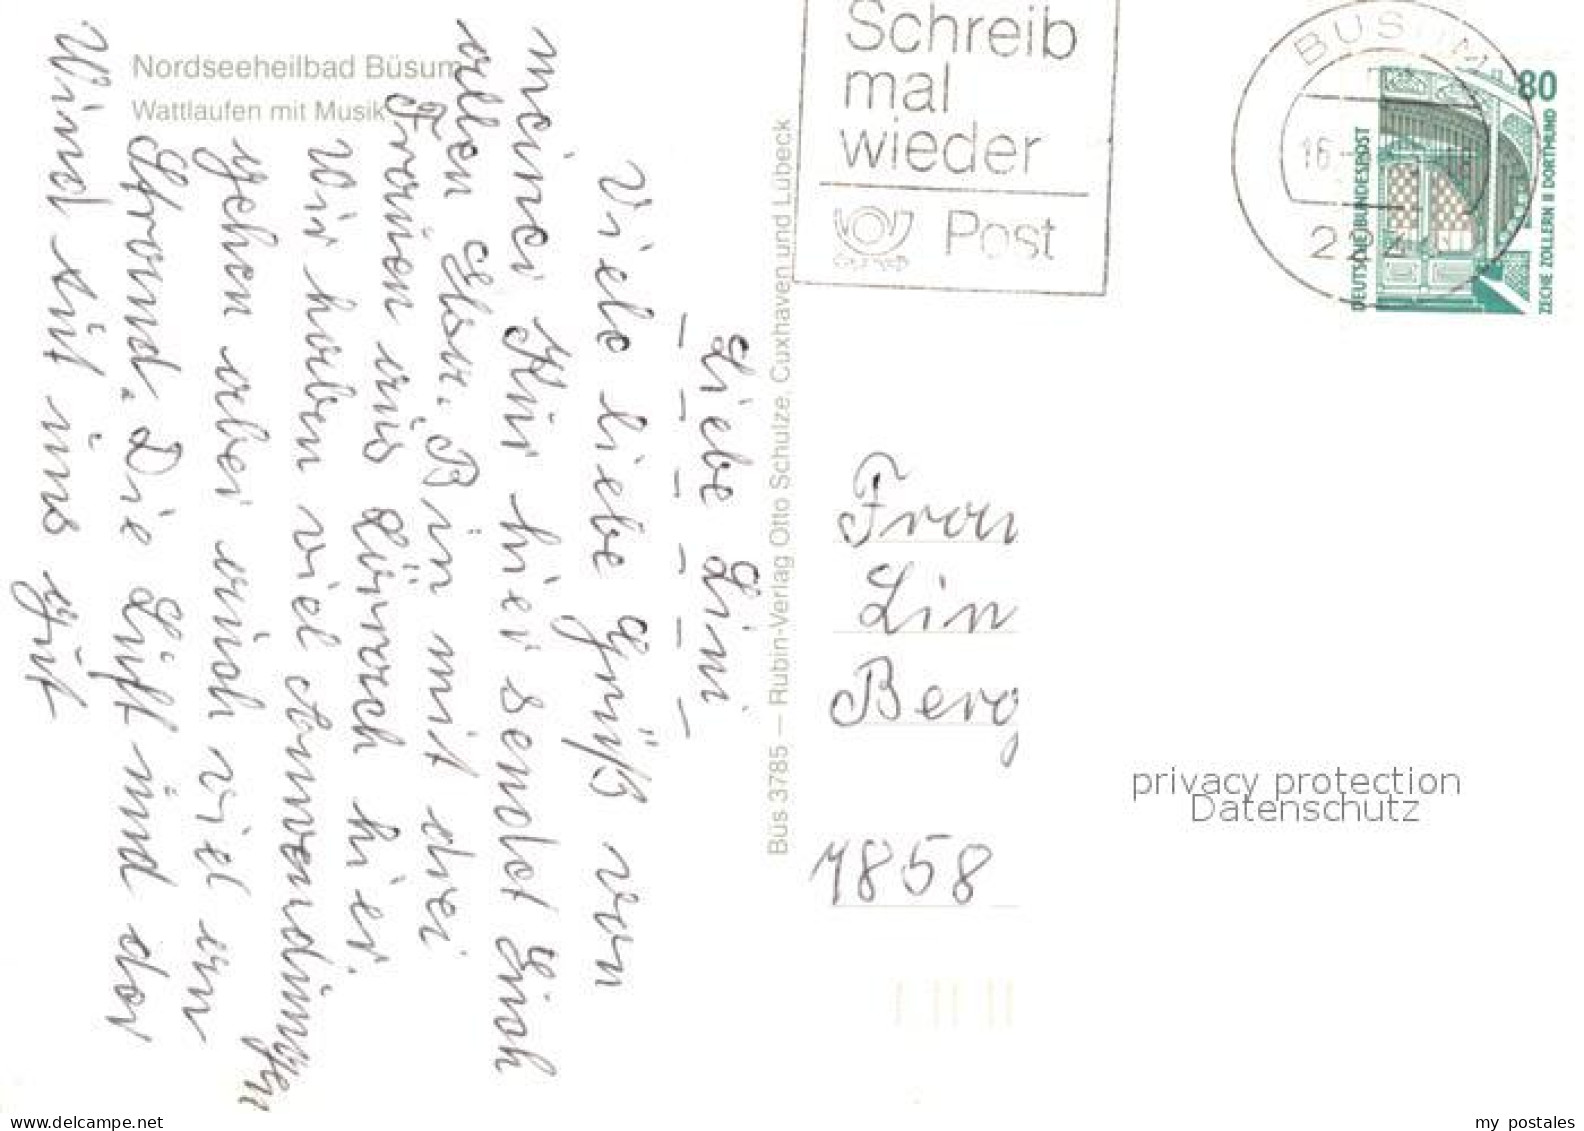 Nordseeheilbad Büsum
Wattlaufen mit Musik
Liebe Lini
Viele liebe Grüß von
meiner Kur hier sendet Euch
allen Elsa. Bin mit drei
Frauen aus Lörrach hier.
Wir haben viel Anwendungen
gehen aber auch viel am
Strand. Die Luft und der
Wind tut uns gut
Büs 3785 — Rubin-Verlag Otto Schulze, Cuxhaven und Lübeck
Schreib
mal
wieder
Post
BÜSUM
16.
80
DEUTSCHE BUNDESPOST
ZECHE ZOLLERN II DORTMUND
Frau
Lin
Berg
7858
privacy protection
Datenschutz
www.delcampe.net
my postales